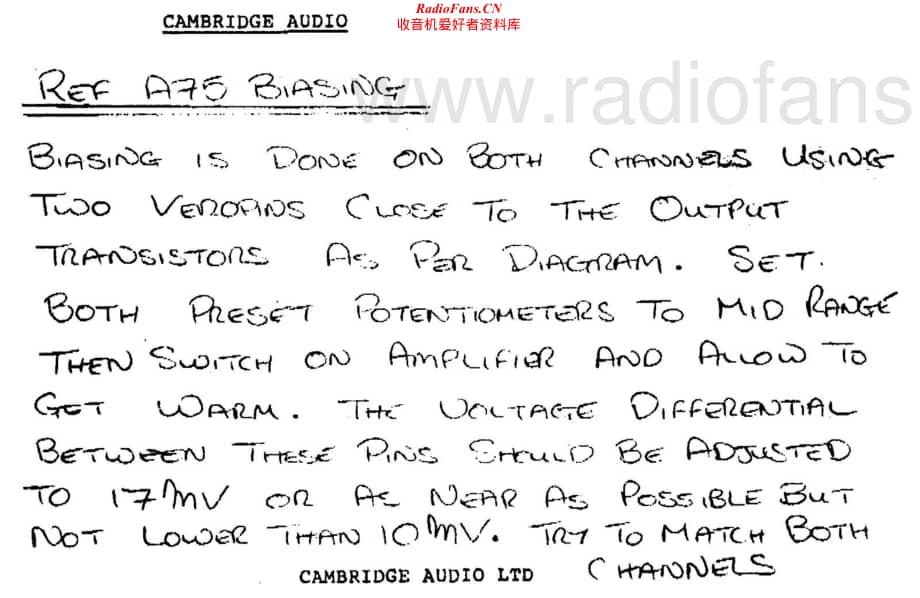 RadioFans.CN
CAMBRIDGE AUDIO
收音机爱好者资料库
REF A75 BIASING
www.radiofans
BIASING IS DONE ON BOTH CHANNELS USING
TWO VEROPINS CLOSE TO THE OUTPUT
TRANSISTORS AS PER DIAGRAM. SET.
BOTH PRESET POTENTIOMETERS TO MID RANGE
THEN SWITCH ON AMPLIFIER AND ALLOW TO
GET WARM. THE VOLTAGE DIFFERENTIAL
BETWEEN THESE PINS SHOULD BE ADJUSTED
TO 17MV OR AS NEAR AS POSSIBLE BUT
NOT LOWER THAN 10MV. TRY TO MATCH BOTH
CHANNELS
CAMBRIDGE AUDIO LTD